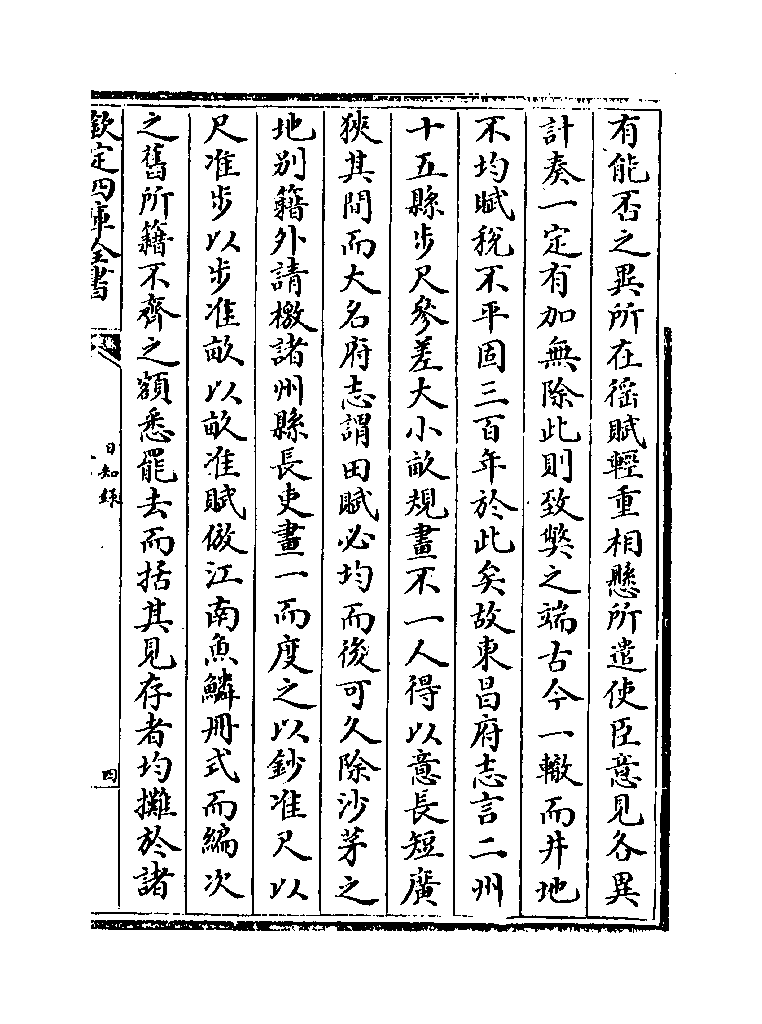 有能否之異所在徭賦輕重相懸所遣使臣意見各異
計奏一定有加無除此則致獘之端古今一轍而井地
不均賦稅不平固三百年於此矣故東昌府志言二州
十五縣步尺參差大小畝規畫不一人得以意長短廣
狹其間而大名府志謂田賦必均而後可久除沙茅之
地别籍外請檄諸州縣長吏畫一而度之以鈔准尺以
尺准步以步准畝以畝准賦倣江南魚鱗冊式而編次
之舊所籍不齊之額悉罷去而括其見存者均攤於諸
欽定四庫全書
日知録
四